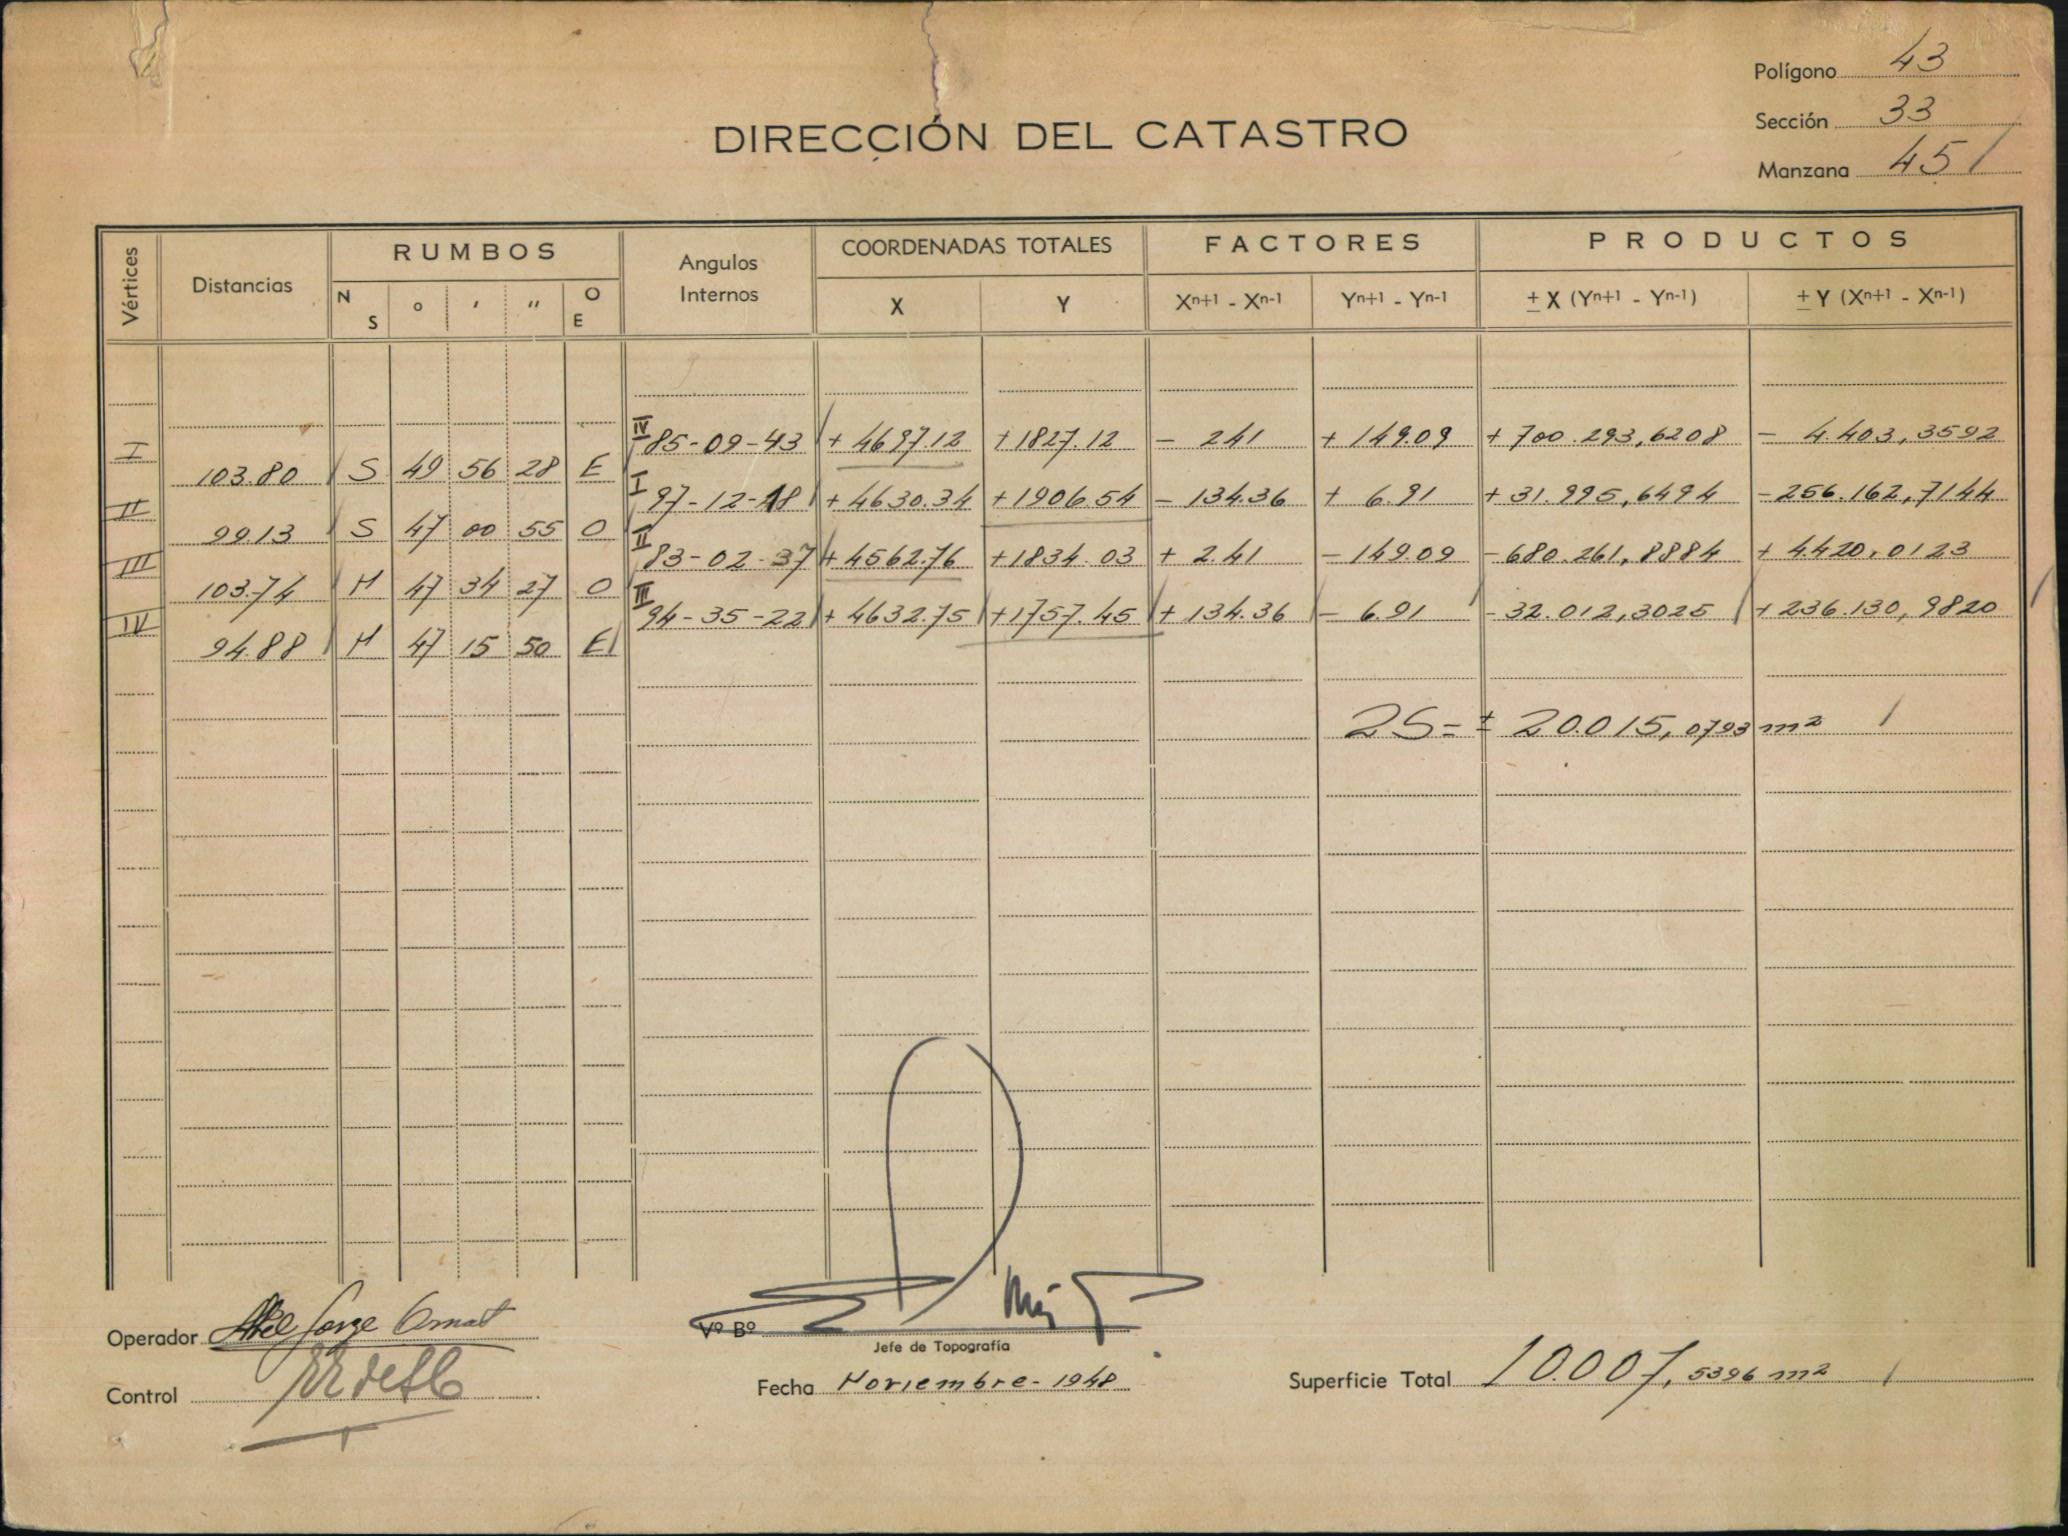 Polígono 43
Sección 33
Manzana 45
DIRECCIÓN DEL CATASTRO
Vértices Distancias RUMBOS Angulos Internos COORDENADAS TOTALES FACTORES PRODUCTOS
N S ° ′ ″ O E X Y Xn+1 - Xn-1 Yn+1 - Yn-1 ± X (Yn+1 - Yn-1) ± Y (Xn+1 - Xn-1)
IV 85-09-43 + 4697.12 +1827.12 - 241 + 149.09 + 700.293,6208 - 4.403,3592
I 103.80 S 49 56 28 E
I 97-12-18 + 4630.34 +1906.54 - 134.36 + 6.91 + 31.995,6494 - 256.162,7144
II 99.13 S 47 00 55 O
II 83-02-37 + 4562.76 +1834.03 + 2.41 - 149.09 - 680.261,8884 + 4.420,0123
III 103.74 N 47 34 27 O
III 94-35-22 + 4632.75 +1757.45 + 134.36 - 6.91 - 32.012,3025 + 236.130,9820
IV 94.88 N 47 15 50 E
2S = ± 20.015,0793 m²
Operador Abel Jorge
Vº Bº
Jefe de Topografía
Control
Fecha Noviembre - 1948
Superficie Total 10.007,5396 m²